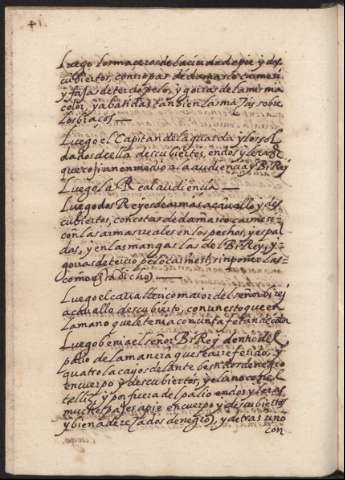 41
Luego los maçeros de la ciudad a pie y des
cubiertos, con ropas de damasco carmesi
y faja de terciopelo, y goras de la misma
color, y abatidas tambien las maças sobre
los braços
Luego el Capitan de la guarda y los sol
dados de ella descubiertos, en dos yleras
que coxian en medio a la audiençia y Vi Rey
Luego la Real audiençia
Luego dos Reyes de armas a cauallo y des
cubiertos, con cotas de damasco carmesi
con las armas reales en los pechos, y espal
das, y en las mangas las del Vi Rey, y
goras de terciopelo carmesi, sin poner las
como esta dicho
Luego el caualleriço mayor del señor Vi Rey
a cauallo descubierto, con un estoque en
la mano que le tenia con punta
Luego benia el señor Vi Rey donde del
palio de la manera que esta referido, y
quatro lacayos delante bestidos de negro
en cuerpo y descubiertos, y el uno
y por fuera del palio en dos yleras
muchos pajes a pie en cuerpo y descubiertos
y bien adereçados de negro, y detras uno
con